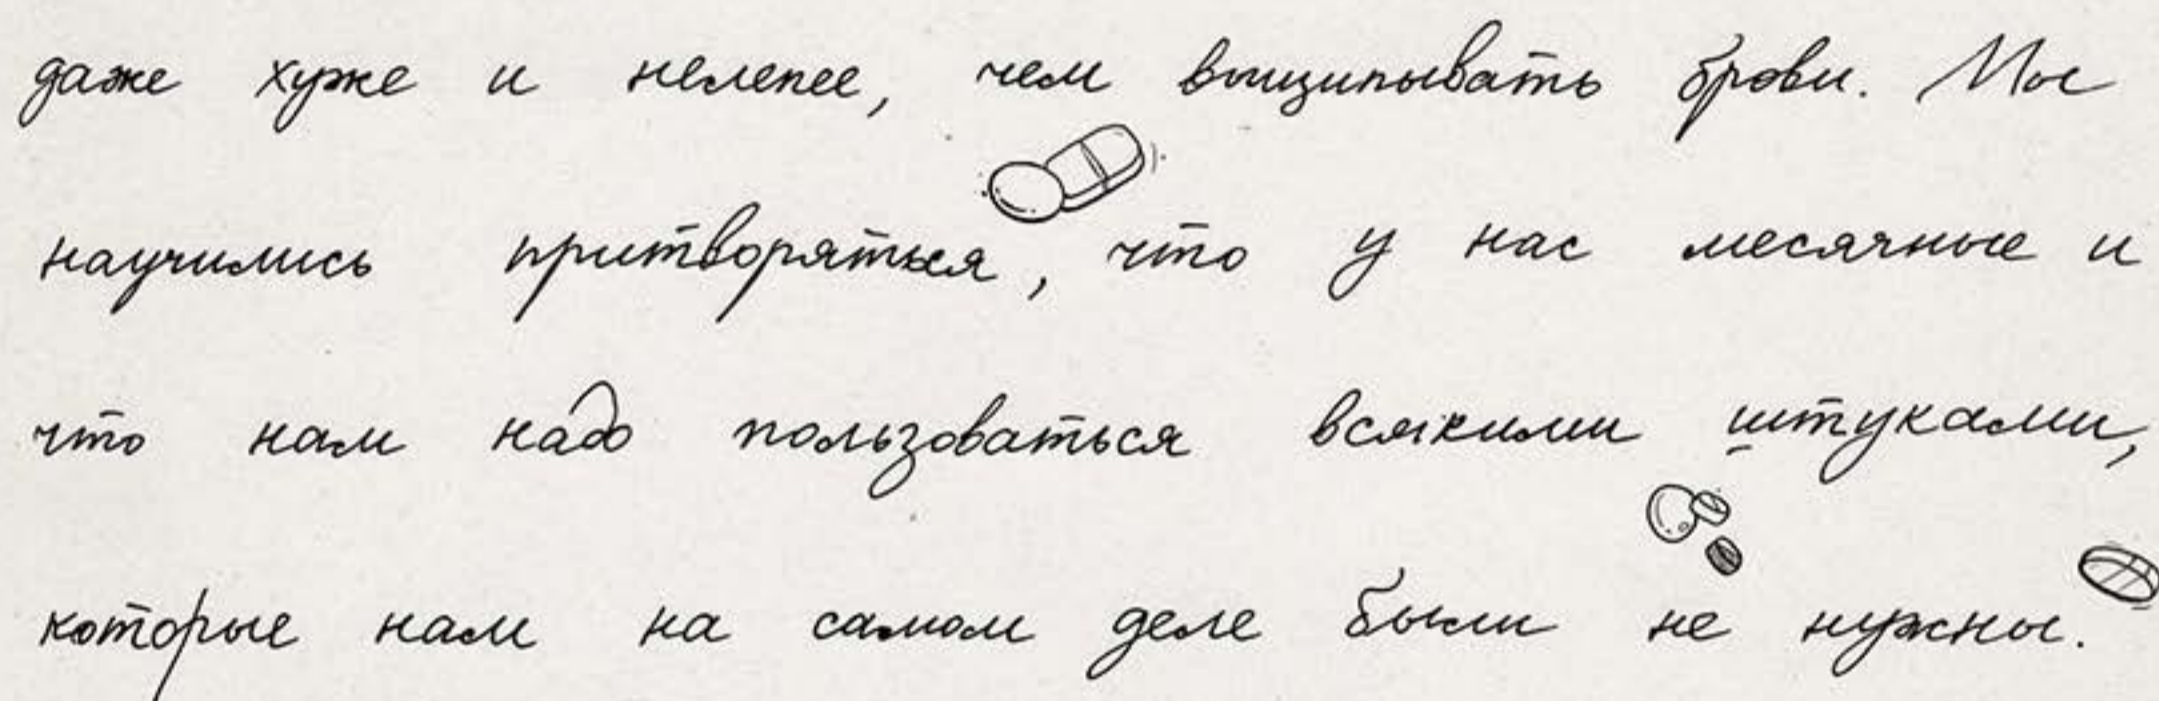 даже хуже и нелепее, чем выщипывать брови. Мы
научились притворяться, что у нас месячные и
что нам надо пользоваться всякими штуками,
которые нам на самом деле были не нужны.